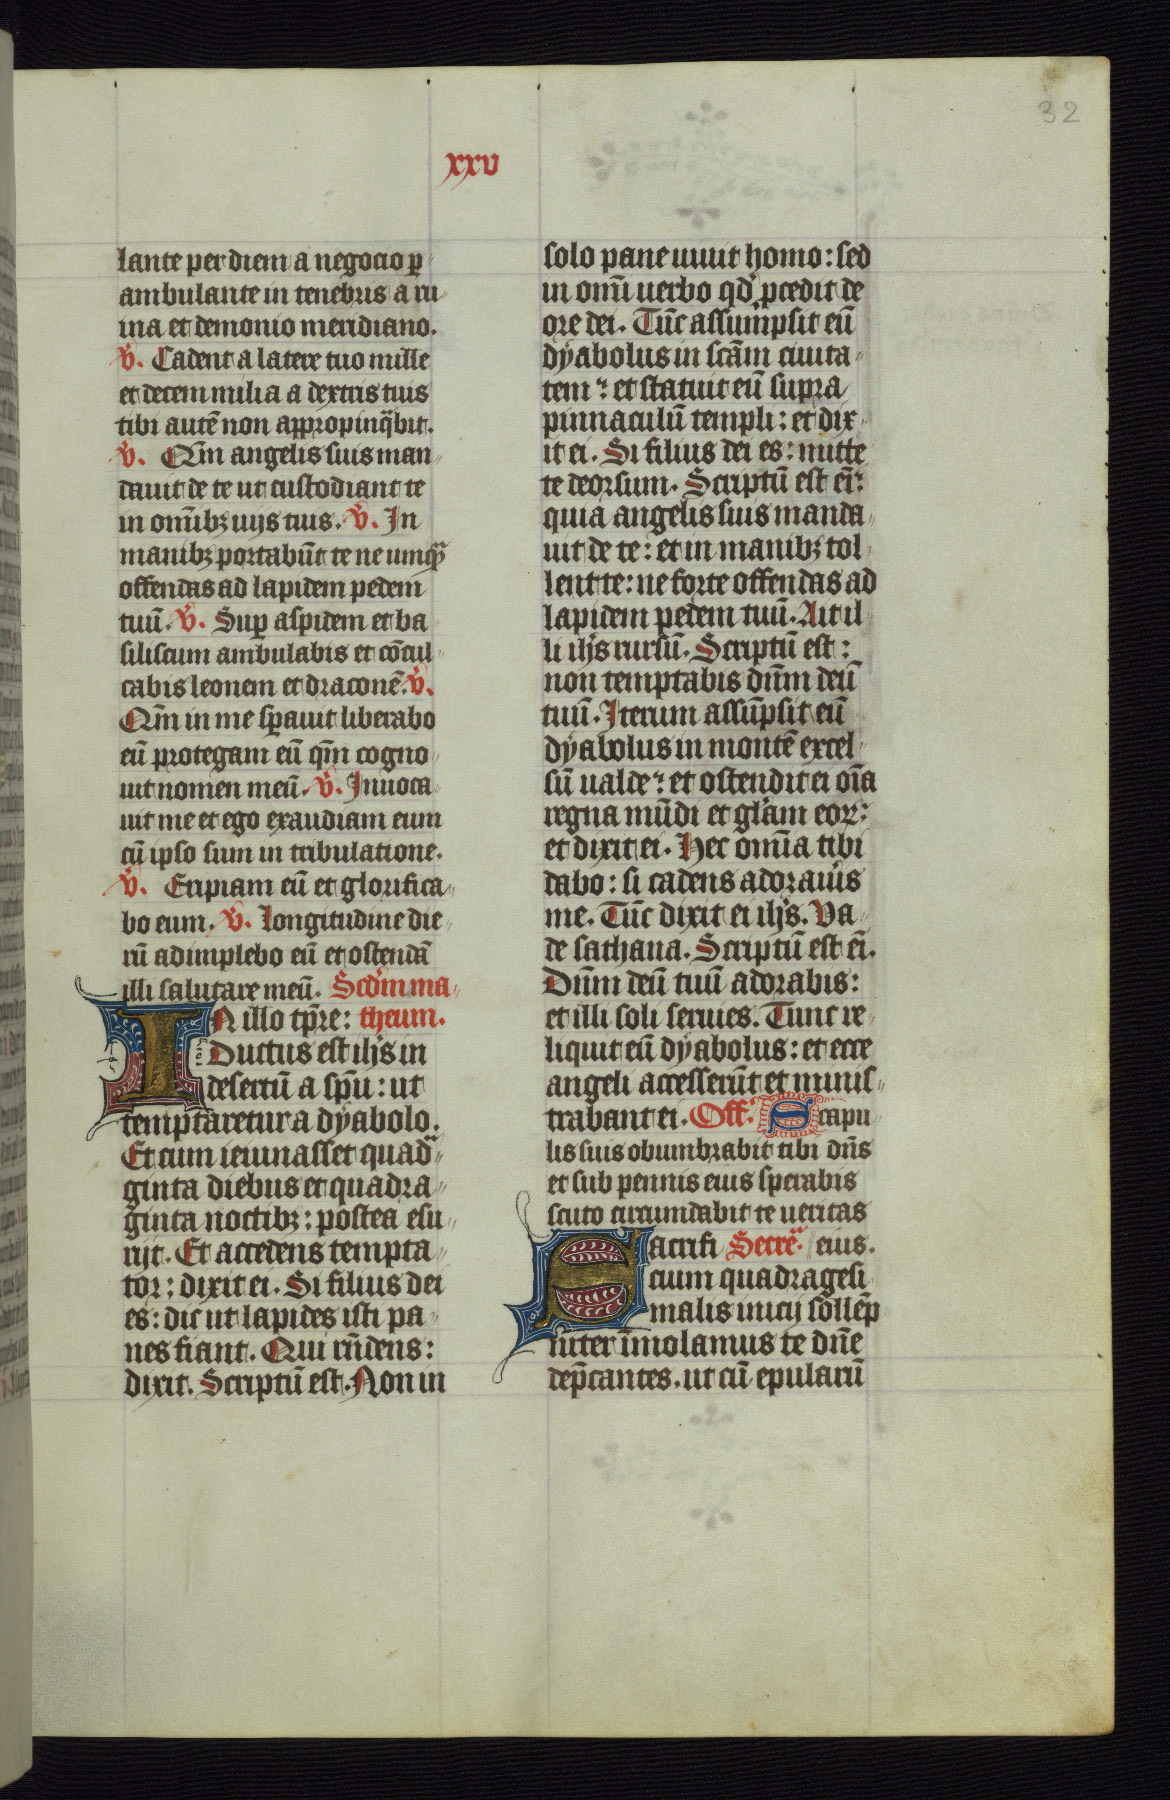 32
xxv
lante per diem a negocio p̲
ambulante in tenebris a ru
ina et demonio meridiano.
v̓. Cadent a latere tuo mille
et decem milia a dextris tuis
tibi autē non appropinq̄bit.
v̓. Qm̄ angelis suis man
dauit de te ut custodiant te
in omībꝫ uijs tuis. v̓. In
manibꝫ portabūt te ne umqᷓ
offendas ad lapidem pedem
tuū. v̓. Suꝑ aspidem et ba
siliscum ambulabis et cōcul
cabis leonem et draconē. v̓.
Qm̄ in me sp̄auit liberabo
eū protegam eū qm̄ cogno
uit nomen meū. v̓. Inuoca
uit me et ego exaudiam eum
cū ipso sum in tribulatione.
v̓. Eripiam eū et glorifica
bo eum. v̓. Longitudine die
rū adimplebo eū et ostendā
illi salutare meū. Scd̓m ma
IN illo tp̄re: theum.
Ductus est ih̄s in
desertū a sp̄u: ut
temptaretur a dyabolo.
Et cum ieiunasset quadᷓ
ginta diebus et quadra
ginta noctibꝫ: postea esu
rijt. Et accedens tempta
tor: dixit ei. Si filius dei
es: dic ut lapides isti pa
nes fiant. Qui rn̄dens:
dixit. Scriptū est. Non in
solo pane uiuit homo: sed
in omī uerbo qd̓ p̲cedit de
ore dei. Tūc assumpsit eū
dyabolus in scām ciuita
tem: et statuit eū supra
pinnaculū templi: et dix
it ei. Si filius dei es: mitte
te deorsum. Scriptū est eī:
quia angelis suis manda
uit de te: et in manibꝫ tol
lent te: ne forte offendas ad
lapidem pedem tuū. Ait il
li ih̄s rursū. Scriptū est:
non temptabis dn̄m deū
tuū. Iterum assūpsit eū
dyabolus in montē excel
sū ualde: et ostendit ei oīa
regna mūdi et glām eoꝝ:
et dixit ei. Hec omīa tibi
dabo: si cadens adorau̓is
me. Tūc dixit ei ih̄s. Va
de sathana. Scriptū est eī.
Dn̄m deū tuū adorabis:
et illi soli seruies. Tunc re
liquit eū dyabolus: et ecce
angeli accesserūt et minis
trabant ei. Off̓. Scapu
lis suis obumbrabit tibi dn̄s
et sub pennis eius sperabis
scuto circumdabit te ueritas
Sacrifi Secreᷓ. eius.
cium quadragesi
malis inicij sollēp
niter īmolamus te dn̄e
dep̄cantes. ut cū epularū